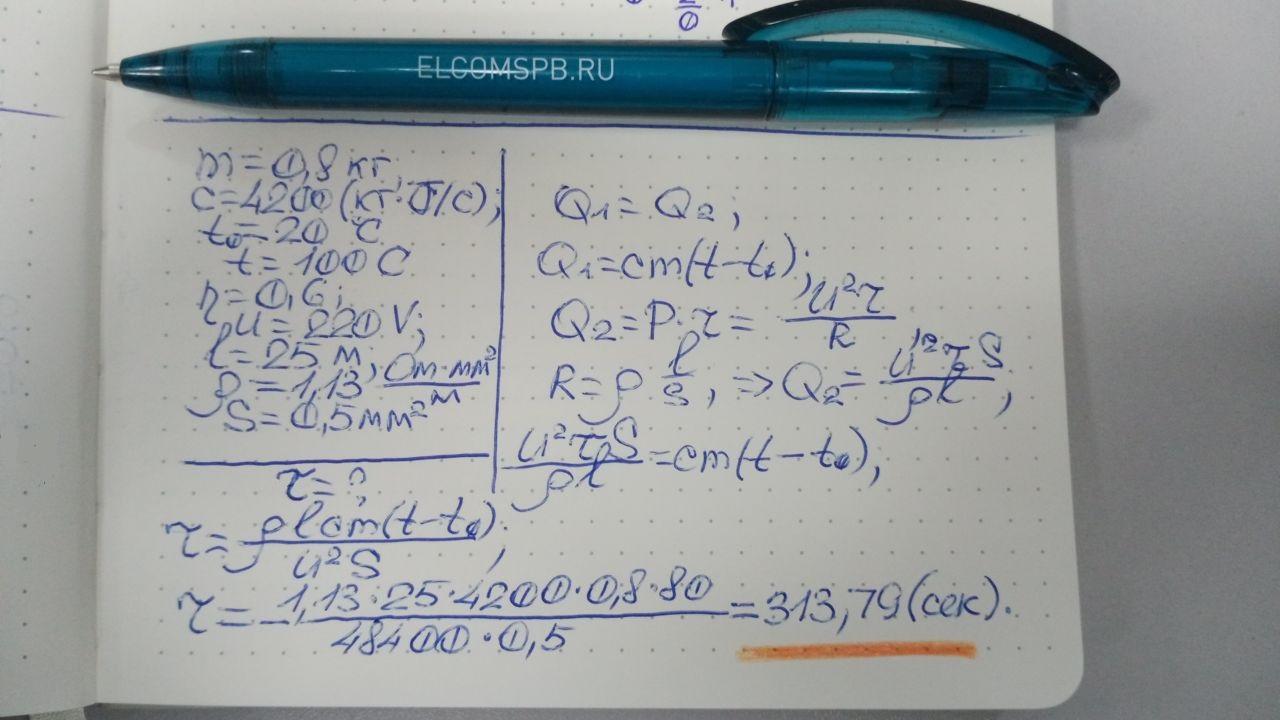 ELCOMSPB.RU
m = 0,8 кг;
c = 4200 (кг·J/c);
t₀ = 20 °C
t = 100 C
η = 0,6;
U = 220 V;
l = 25 м;
ρ = 1,13 Ом·мм²/м
S = 0,5 мм²
τ = ?
Q₁ = Q₂;
Q₁ = cm(t-t₀);
Q₂ = P·τ = U²τ/R
R = ρ l/s, => Q₂ = U²τS/ρl,
U²τS/ρl = cm(t-t₀),
τ = ρlcm(t-t₀)/U²S;
τ = 1,13·25·4200·0,8·80/48400·0,5 = 313,79 (сек).